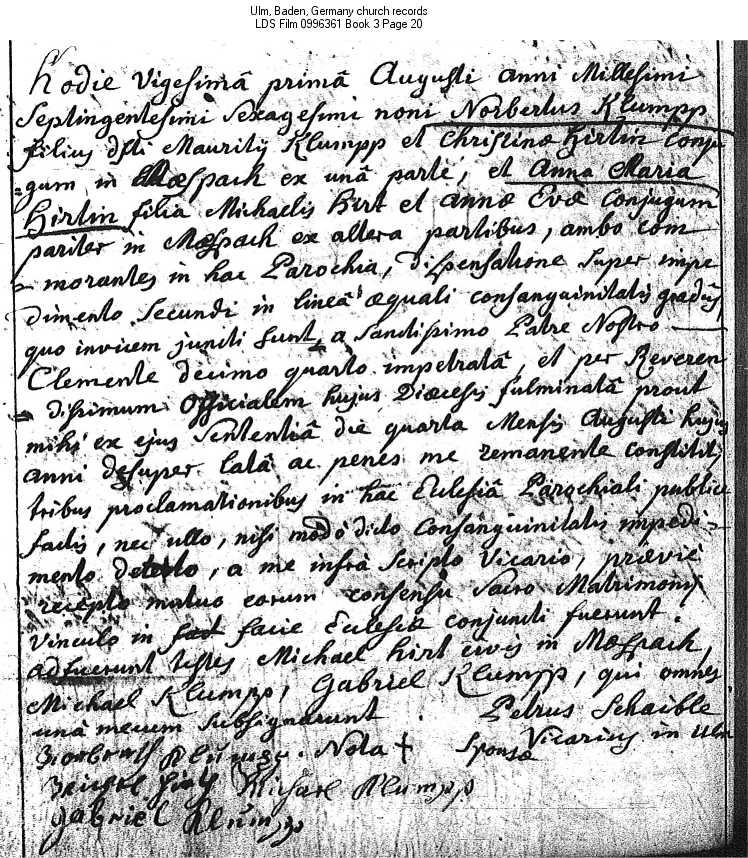 Ulm, Baden, Germany church records
LDS Film 0996361 Book 3 Page 20
hodie Vigesimâ primâ Augusti anni Millesimi
Septingentesimi Sexagesimi noni Norbertus Klumpp
filius dfti Mauritij Klumpp et Christinæ hirtin Conju
=gum in Mæspach ex unâ parte, et Anna Maria
Hirtin filia Michaelis hirt et annæ Evæ Conjugum
pariter in Mæspach ex altera partibus, ambo com
- morantes in hac Parochia, dispensatione super impe
dimento Secundi in lineâ æquali consanguinitatis gradûs,
quo invicem juncti sunt, a Sanctissimo Patre Nostro
Clemente decimo quarto impetratâ, et per Reveren
- dissimum Officialem hujus Diœcesis fulminatâ prout
mihi ex ejus Sententiâ die quarta Mensis Augusti hujus
anni desuper latâ ac penes me remanente constitit,
tribus proclamationibus in hâc Ecclesiâ Parochiali publice
factis, nec ullo, nisi modò dicto Consanguinitatis impedi=
mento detecto, a me infrà Scripto Vicario, præviè
recepto mutuo eorum consensu Sacro Matrimonij
Vinculo in facie Ecclesiæ conjuncti fuerunt.
adfuerunt testes Michael hirt civis in Mæspach,
Michael Klumpp, Gabriel Klumpp, qui omnes
unà mecum subsignarunt. Petrus Schaible
Vicarius in Ulm
Norberth Klumpp. Nota + Sponsæ
Michel hirt Michael Klumpp
gabriel Klumpp